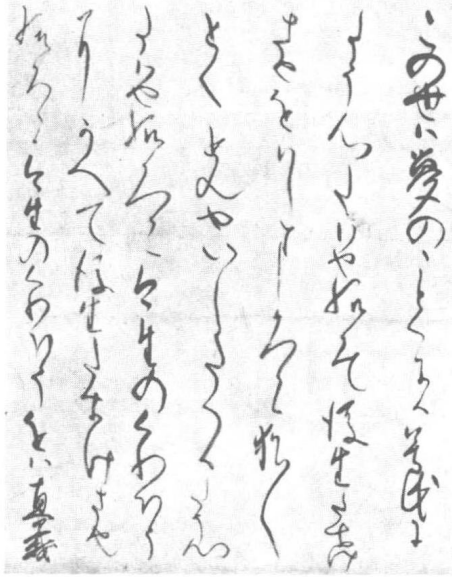 この世は夢のことくに候尊氏に
たう心たはせ給候て後生たすけ
させをはしまし候へく候猶々
とくとんせいしたく候たう心
たはせ給候へく候今生のくわほう
にかへて後生たすけさせ
給候へく候今生のくわほうをは直義